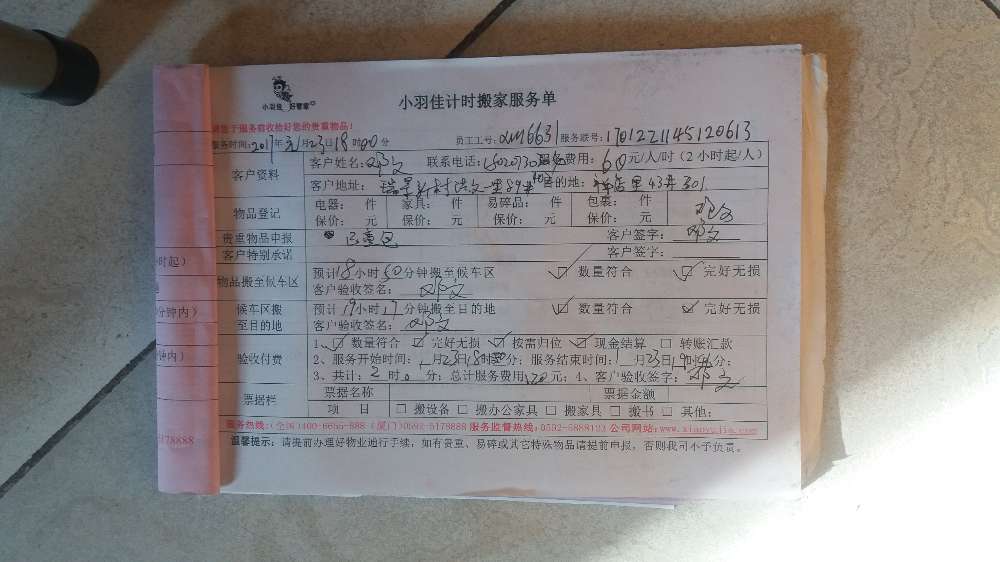 小羽佳 好管家
小羽佳计时搬家服务单
请您于服务前收拾好您的贵重物品!
服务时间:2017年元月23日18时00分 员工工号:xm6631 服务联号:1701221145120613
客户资料
客户姓名:邓文 联系电话: 服务费用:60元/人/时(2小时起/人)
客户地址: 目的地: 祥店里43#301
物品登记
电器: 件 家具: 件 易碎品: 件 包裹: 件
保价: 元 保价: 元 保价: 元 保价: 元 邓文
贵重物品申报 已查包 客户签字:邓文
客户特别承诺 客户签字:
时起)
物品搬至候车区
预计18小时50分钟搬至候车区 ☑ 数量符合 ☑ 完好无损
客户验收签名: 邓文
分钟内)
候车区搬至目的地
预计19小时17分钟搬至目的地 ☑ 数量符合 ☑ 完好无损
客户验收签名: 邓文
钟内)
验收付费
1、☑ 数量符合 ☑ 完好无损 ☑ 按需归位 ☑ 现金结算 □ 转账汇款
2、服务开始时间:1月23日18时00分; 服务结束时间:1月23日19时分;
3、共计:2时0分; 总计服务费用:120元; 4、客户验收签字: 邓文
票据栏
票据名称 票据金额
项 目 □ 搬设备 □ 搬办公家具 □ 搬家具 □ 搬书 □ 其他:
5178888
服务热线:(全国)400-6655-888 (厦门)0592-5178888 服务监督热线:0592-5888123 公司网站:www.xiaoyujia.com
温馨提示: 请提前办理好物业通行手续, 如有贵重、易碎或其它特殊物品请提前申报, 否则我司不予负责。